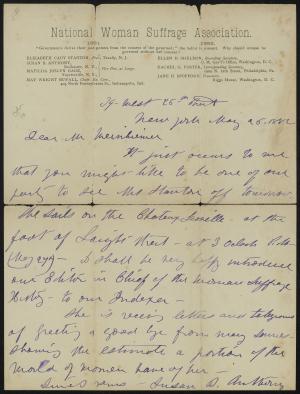 National Woman Suffrage Association.
1881. 1882.
"Governments derive their just powers from the consent of the governed;" the ballot is consent. Why should woman be
governed without her consent?
ELIZABETH CADY STANTON, Pres., Tenafly, N. J.
SUSAN B. ANTHONY,
Rochester, N. Y.
MATILDA JOSLYN GAGE,
Fayetteville, N. Y.
Vice-Pres. at Large.
MAY WRIGHT SEWALL, Chair. Ex. Com.
Indianapolis, Ind.
ELLEN H. SHELDON, Recording Secretary,
Washington, D. C.
RACHEL G. FOSTER, Corresponding Secretary,
Philadelphia, Pa.
JANE H. SPOFFORD, Treasurer,
Riggs House, Washington, D. C.
West 26th Street
New York May 26. 1882
Dear Mr
It just occurs to me
that you might like to be one of our
party to see Mrs Stanton off tomorrow
She sails on the Chateau – at the
foot of Laight street – at 3 Oclock P.M.
May 27th – I shall be very happy introduce
our Editor in Chief of the Woman Suffrage
History – to our Indexer –
She is receiving letters and telegrams
of greeting & good bye from many sources
showing the estimate a portion of the
world of women have of her –
Susan B. Anthony